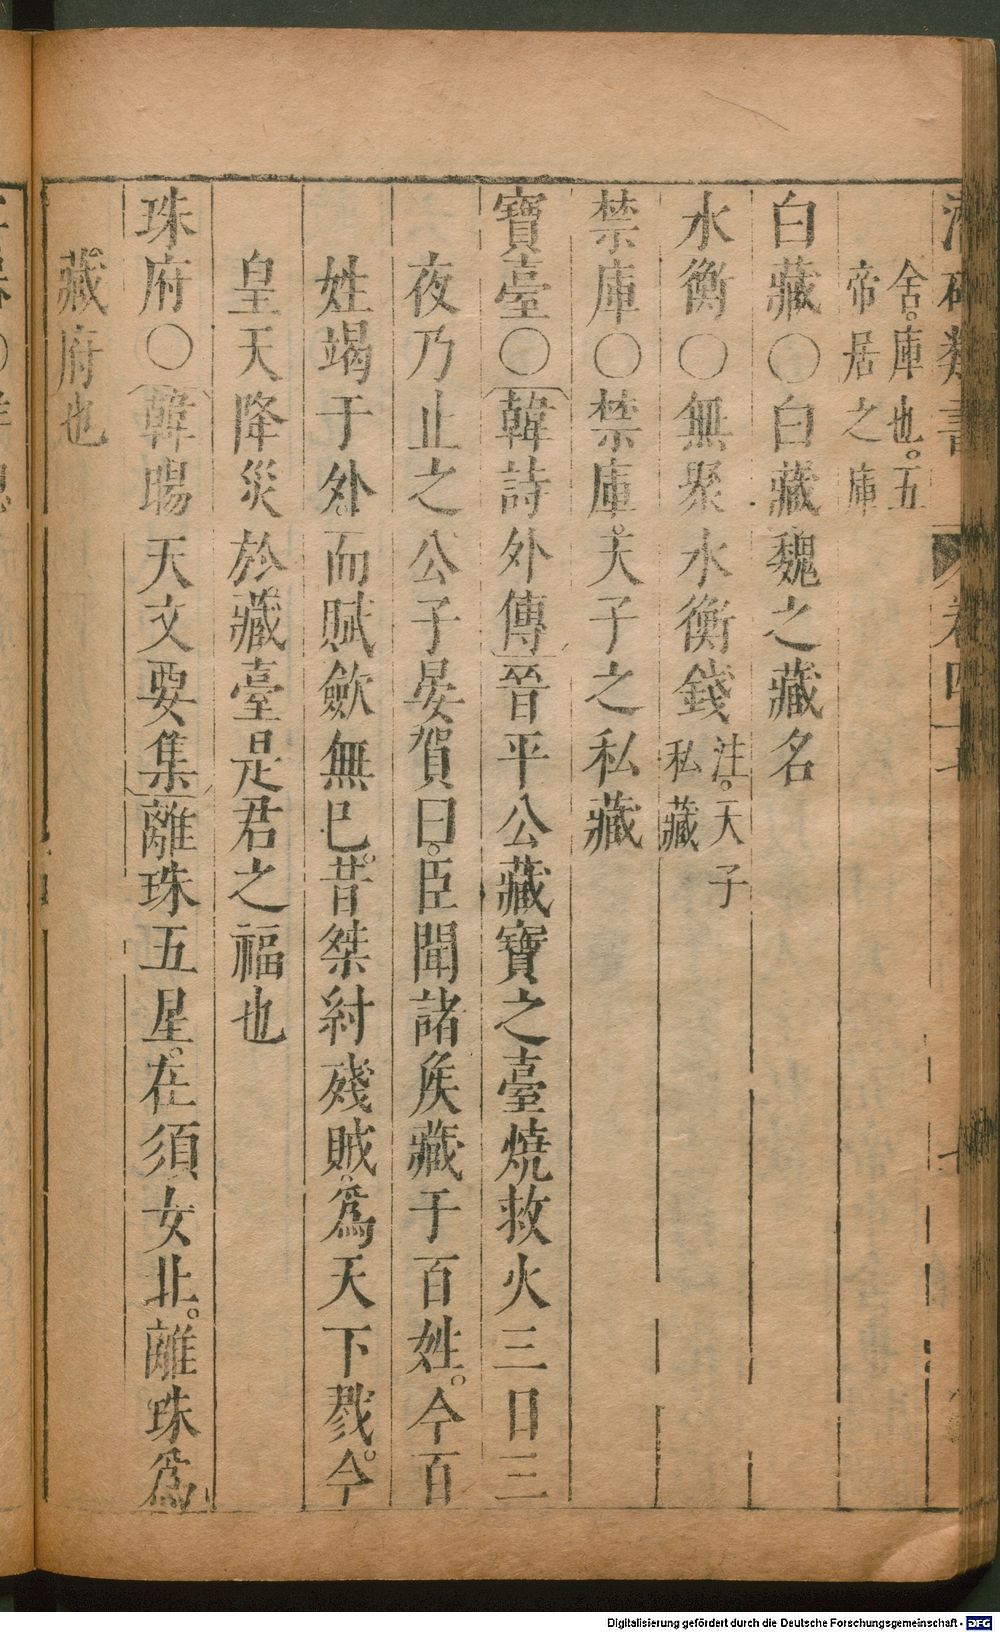 舍。庫也。五
帝居之庫
白藏〇白藏魏之藏名
水衡〇無聚水衡錢注。天子
私藏
禁庫〇禁庫。天子之私藏
寶臺〇韓詩外傳晉平公藏寶之臺燒救火三日三
夜乃止之公子晏賀曰。臣聞諸矦藏于百姓。今百
姓竭于外。而賦歛無已。昔桀紂殘賊。爲天下戮。今
皇天降災於藏臺是君之福也
珠府〇韓暘天文要集離珠五星。在須女北。離珠爲
藏府也
Digitalisierung gefördert durch die Deutsche Forschungsgemeinschaft - DFG